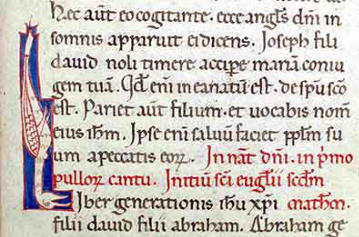 Hec aut eo cogitante. ecce angls dni in
somnis apparuit ei dicens. Joseph fili
david noli timere accipe mariā coniu
gem tuā. Qd eni in ea natu est. de spu sco
est. Pariet aut filium. et vocabis nom
eius ihm. Ipse eni salvū faciet pplm su
um a peccatis eorꝝ. In nāt dni. in pmo
pullorꝝ cantu. Initiū sci euglii scdm
Liber generationis ihu xpi matheū.
filii david filii abraham. Abraham ge